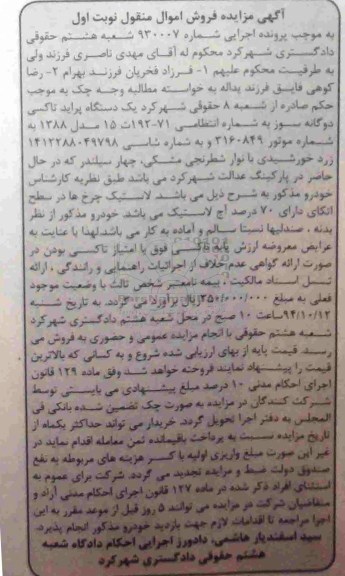 آگهی مزایده فروش اموال منقول نوبت اول
به موجب پرونده اجرایی شماره ۹۳۰۰۰۷ شعبه هشتم حقوقی
دادگستری شهرکرد محکوم له آقای مهدی ناصری فرزند ولی
به طرفیت محکوم علیهم ۱- فرزاد فخریان فرزند بهرام ۲- رضا
کوهی فایق فرزند یداله به خواسته مطالبه وجه چک به موجب
حکم صادره از شعبه ۸ حقوقی شهرکرد یک دستگاه پراید تاکسی
دوگانه سوز به شماره انتظامی ۷۱-۱۹۲ت ۱۵ مدل ۱۳۸۸ به
شماره موتور ۳۱۶۰۸۴۹ و به شماره شاسی ۱۴۱۲۲۸۸۰۴۹۷۹۸
زرد خورشیدی با نوار شطرنجی مشکی، چهار سیلندر که در حال
حاضر در پارکینگ عدالت شهرکرد می باشد طبق نظریه کارشناس
خودرو مذکور به شرح ذیل می باشد. لاستیک چرخ ها در سطح
اتکای دارای ۷۰ درصد آج لاستیک می باشد خودرو مذکور از نظر
بدنه ، صندلیها نسبتا سالم و آماده به کار می باشد.لهذا با عنایت به
عرایض معروضه ارزش پایه تاکسی فوق با امتیاز تاکسی بودن در
صورت ارائه گواهی عدم خلاف از اجرائیات راهنمایی و رانندگی ، ارائه
تسلسل اسناد مالکیت ، بیمه نامعتبر شخص ثالث با وضعیت موجود
فعلی به مبلغ ۲۵۰/۰۰۰/۰۰۰ریال برآورد می گردد. به تاریخ شنبه
۹۴/۱۰/۱۲ساعت ۱۰ صبح در محل شعبه هشتم دادگستری شهرکرد
شعبه هشتم حقوقی با انجام مزایده عمومی و حضوری به فروش می
رسد. قیمت پایه از بهای ارزیابی شده شروع و به کسانی که بالاترین
قیمت را پیشنهاد نمایند فروخته خواهد شد وفق ماده ۱۲۹ قانون
اجرای احکام مدنی ۱۰ درصد مبلغ پیشنهادی می بایستی توسط
شرکت کنندگان در مزایده به صورت چک تضمین شده بانکی فی
المجلس به دفتر اجرا تحویل گردد. خریدار می تواند حداکثر یکماه از
تاریخ مزایده نسبت به پرداخت باقیمانده ثمن معامله اقدام نماید در
غیر این صورت مبلغ واریزی اولیه با کسر هزینه های مربوطه به نفع
صندوق دولت ضبط و مزایده تجدید می گردد. شرکت برای عموم به
استثنای افراد ذکر شده در ماده ۱۲۷ قانون اجرای احکام مدنی آزاد و
متقاضیان شرکت در مزایده می توانند ۵ روز قبل از موعد مقرر به این
اجرا مراجعه تا اقدامات لازم جهت بازدید خودرو مذکور انجام پذیرد.
سید اسفندیار هاشمی، دادورز اجرایی احکام دادگاه شعبه
هشتم حقوقی دادگستری شهرکرد